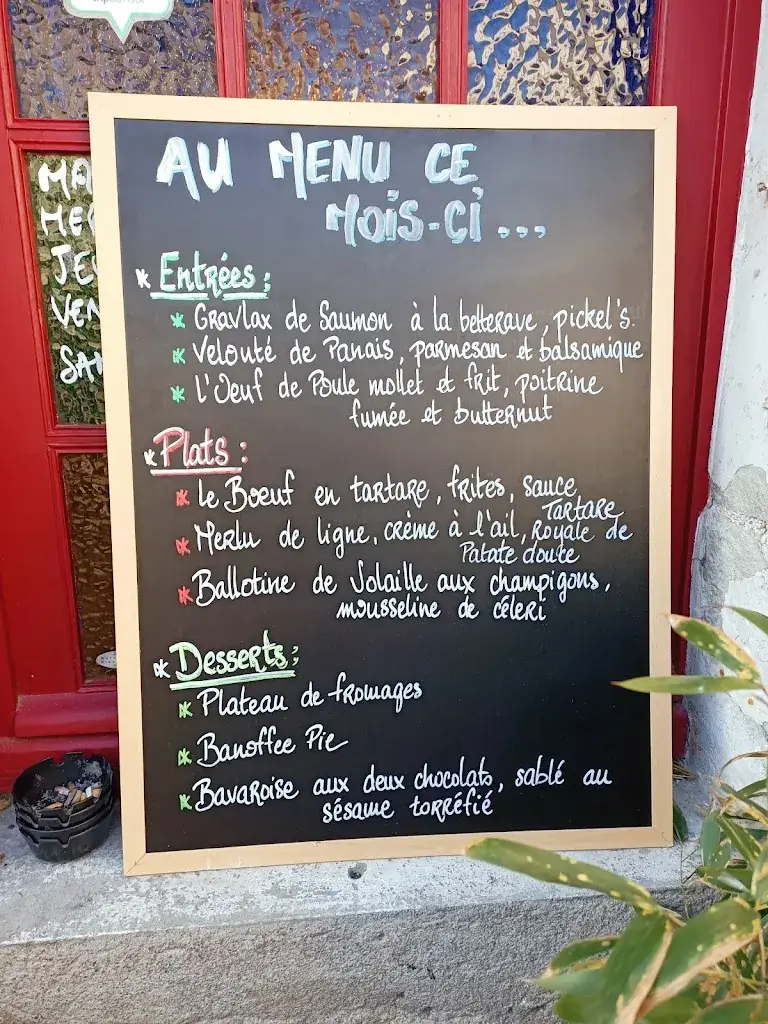 AU MENU CE
MOIS-CI...
* Entrées :
* Gravlax de Saumon à la betterave, pickel's.
* Velouté de Panais, parmesan et balsamique
* L'Oeuf de Poule mollet et frit, poitrine
fumée et butternut
* Plats :
* Le Boeuf en tartare, frites, sauce
Tartare
* Merlu de ligne, crème à l'ail, Royale de
Patate douce
* Ballotine de Volaille aux champigons,
mousseline de céleri
* Desserts :
* Plateau de fromages
* Banoffee Pie
* Bavaroise aux deux chocolats, sablé au
sésame torréfié
MA
ME
JE
VEN
SA